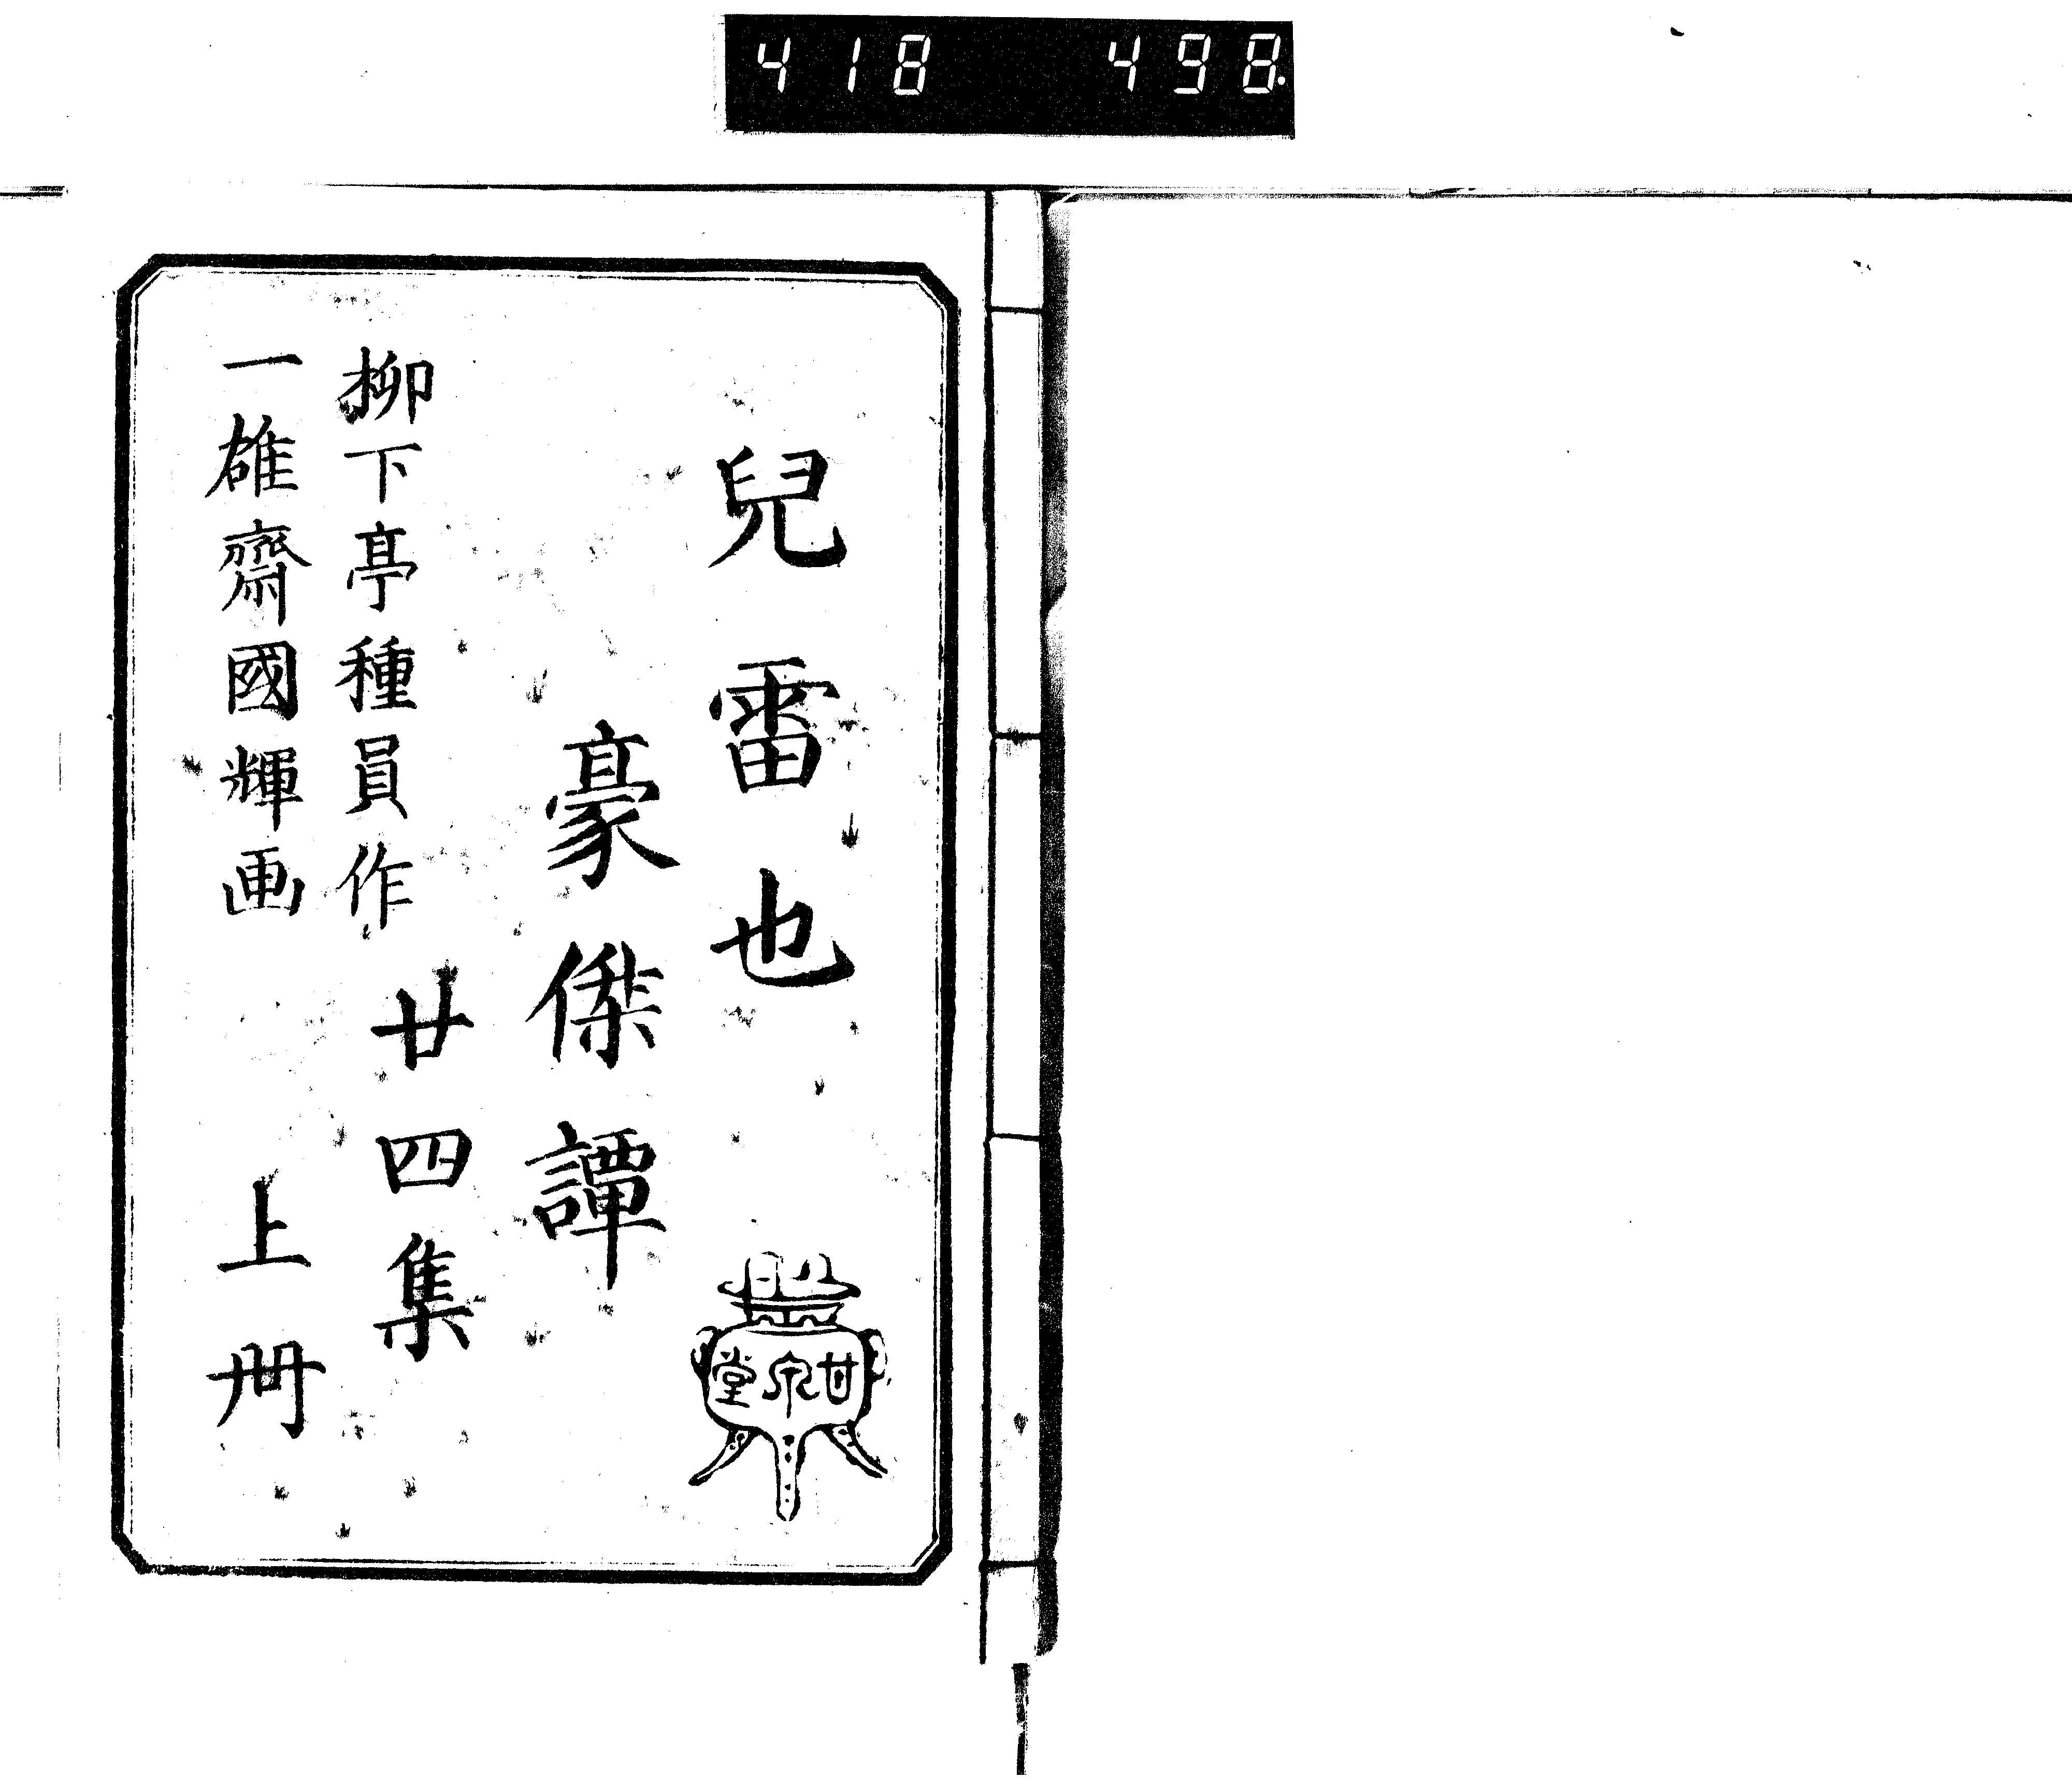 418 498.
兒雷也
豪傑譚
柳下亭種員作
廿四集
一雄齋國輝画
上冊
甘泉堂